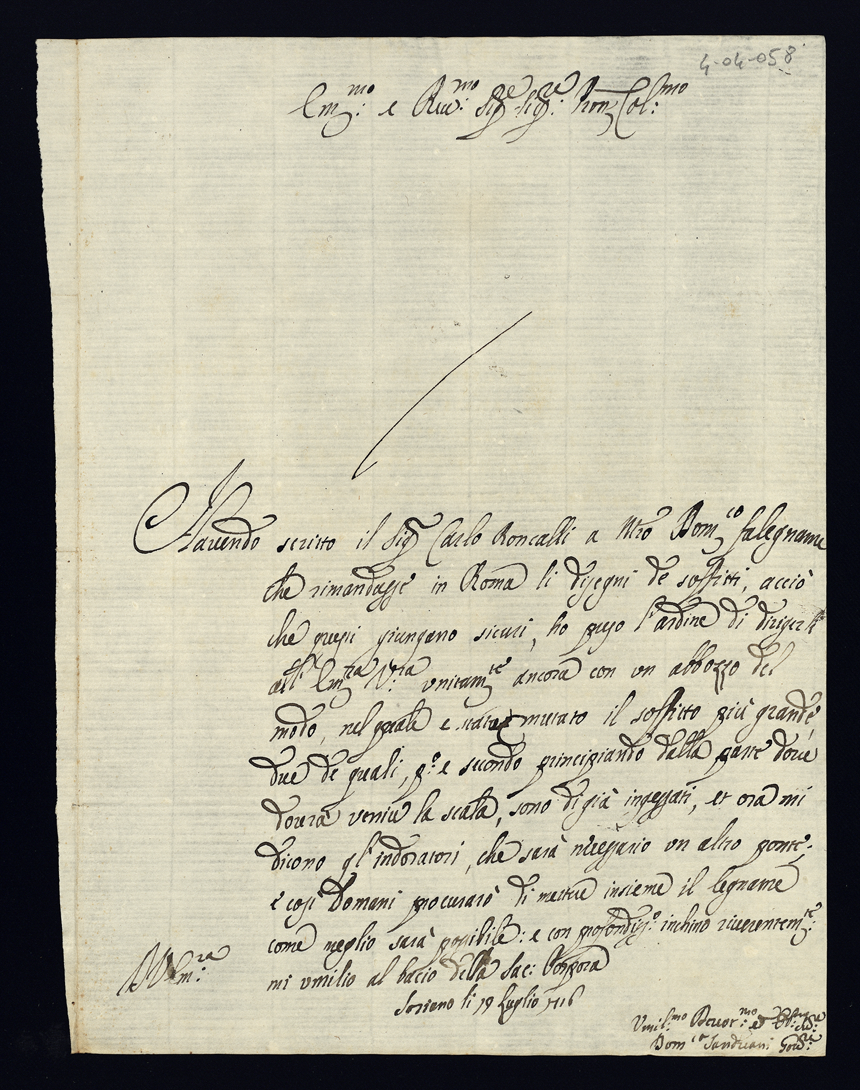 4-04-058
Em.mo e Rev.mo Sig.re Sig.re Pron Col.mo
Havendo scritto il Sig.r Carlo Roncalli a Mro Dom.co falegname
che rimandasse in Roma li disegni de soffitti, acciò
che questi giungano sicuri, ho preso l'ardire di diriger li
all' Em.za V.ra unitam.te ancora con un abbozzo del
modo, nel quale e stato mutato il soffitto più grande
due de quali, p.o e secondo principiando dalla parte dove
dourà venire la scala, sono di già ingessati, et ora mi
dicono gl'indoratori, che sarà necessario un altro ponte,
e così Domani procurarò di mettere insieme il legname
come meglio sarà possibile: e con profondiss.o inchino riverentem.te
mi umilio al bacio della Sac: Porpora
Soriano li 19 Luglio 1716
Umil.mo Devot.mo et
Dom.co